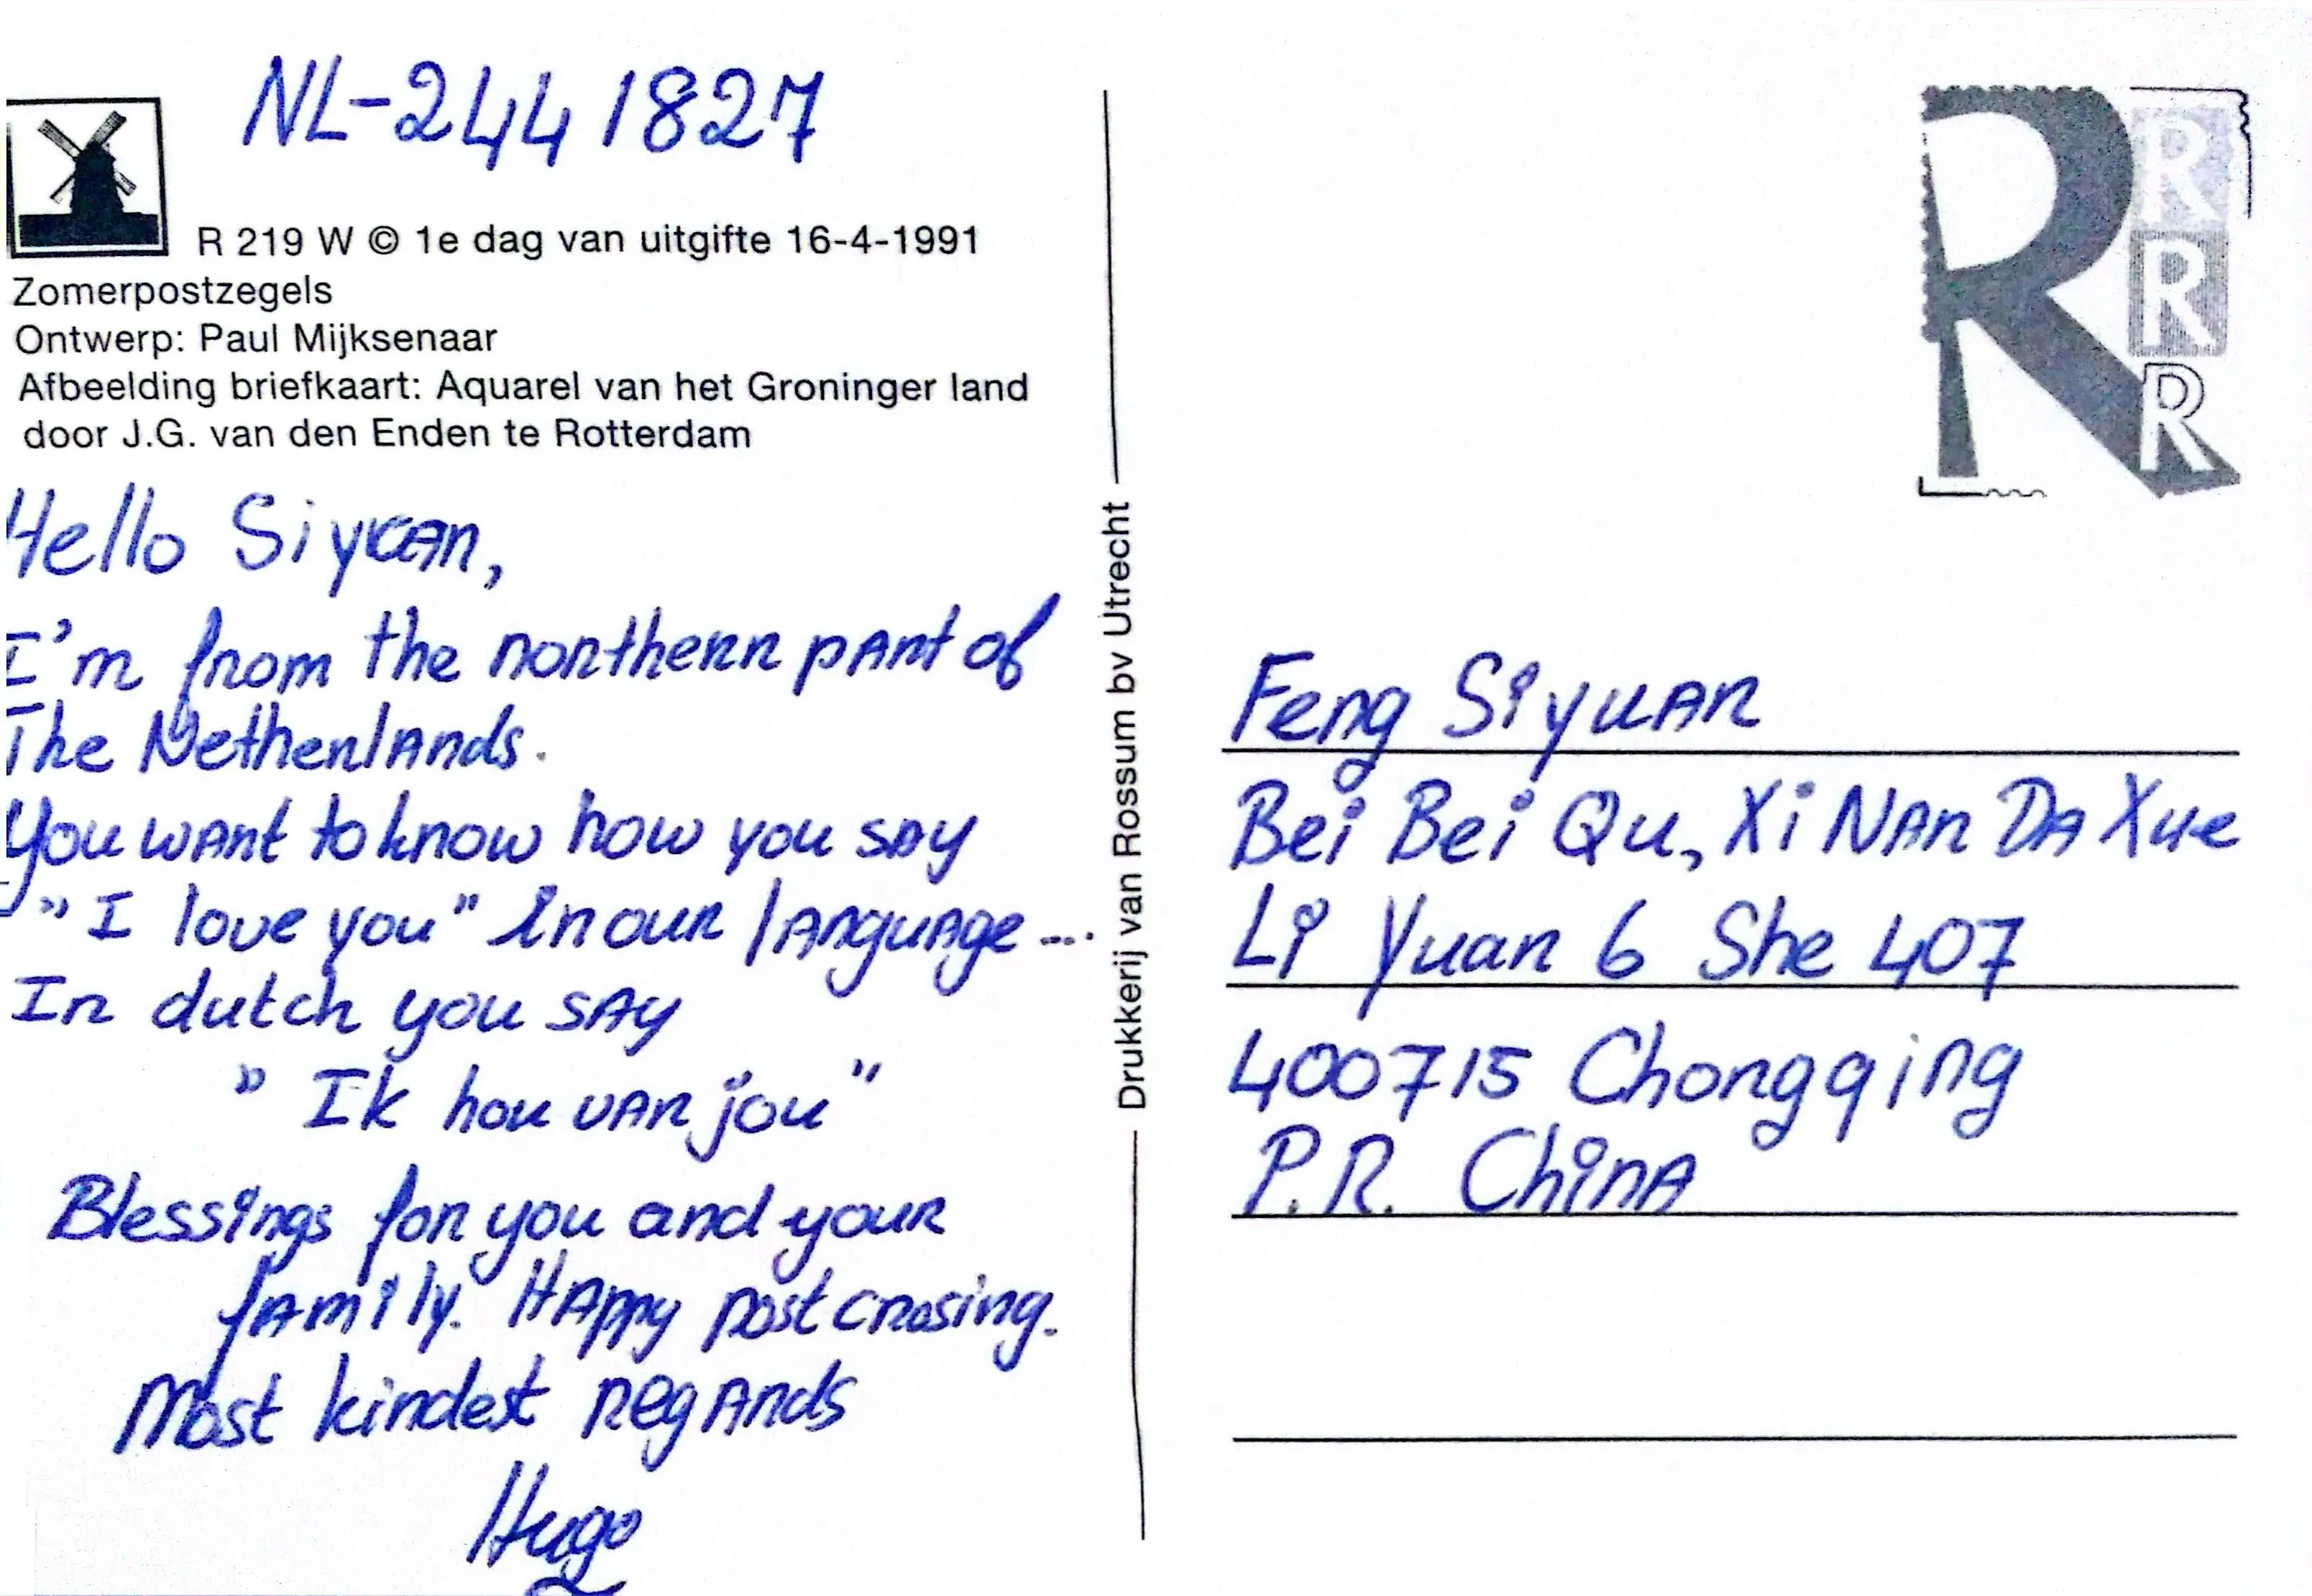 NL-2441827
R 219 W © 1e dag van uitgifte 16-4-1991
Zomerpostzegels
Ontwerp: Paul Mijksenaar
Afbeelding briefkaart: Aquarel van het Groninger land
door J.G. van den Enden te Rotterdam
Hello Siyuan,
I'm from the northern part of
The Netherlands.
You want to know how you say
"I love you" in our language ...
In dutch you say
"Ik hou van jou"
Blessings for you and your
family. Happy postcrosing.
Most kindest regards
Hugo
Drukkerij van Rossum bv Utrecht
R
R
R
R
Feng Siyuan
Bei Bei Qu, Xi Nan Da Xue
Li Yuan 6 She 407
400715 Chongqing
P.R. China